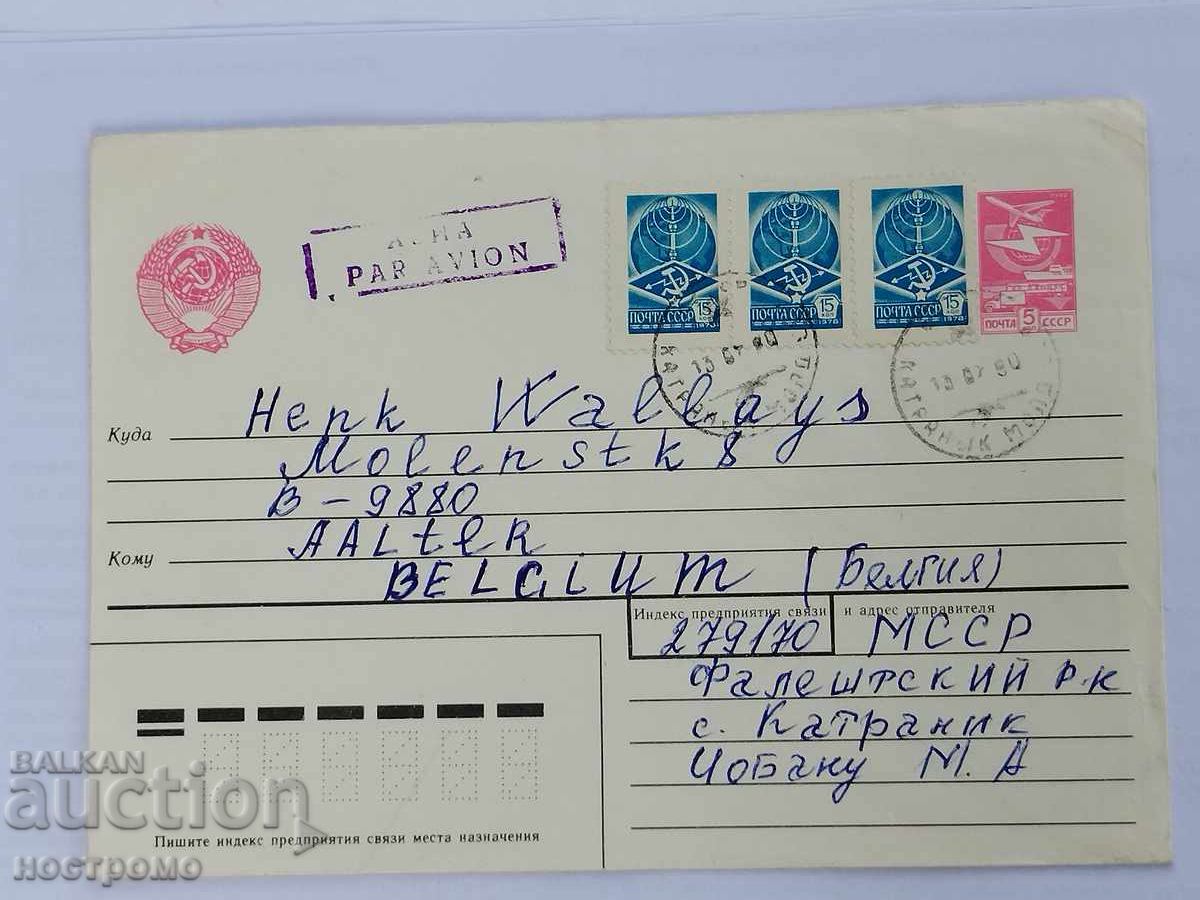 АВИА
PAR AVION
ПОЧТА СССР 15 КОП 1978
ПОЧТА СССР 15 КОП 1978
ПОЧТА СССР 15 КОП 1978
ПОЧТА 5 СССР
13 07 90
13 07 90
Henk Wallays
Куда
Molenstk 8
B - 9880
AALtER
Кому
BELGIUM (Белгия)
Индекс предприятия связи и адрес отправителя
279170 МССР
Фалештский р-к
с. Катраник
Чобану М. А
BALKAN
auction
Пишите индекс предприятия связи места назначения
ностромо